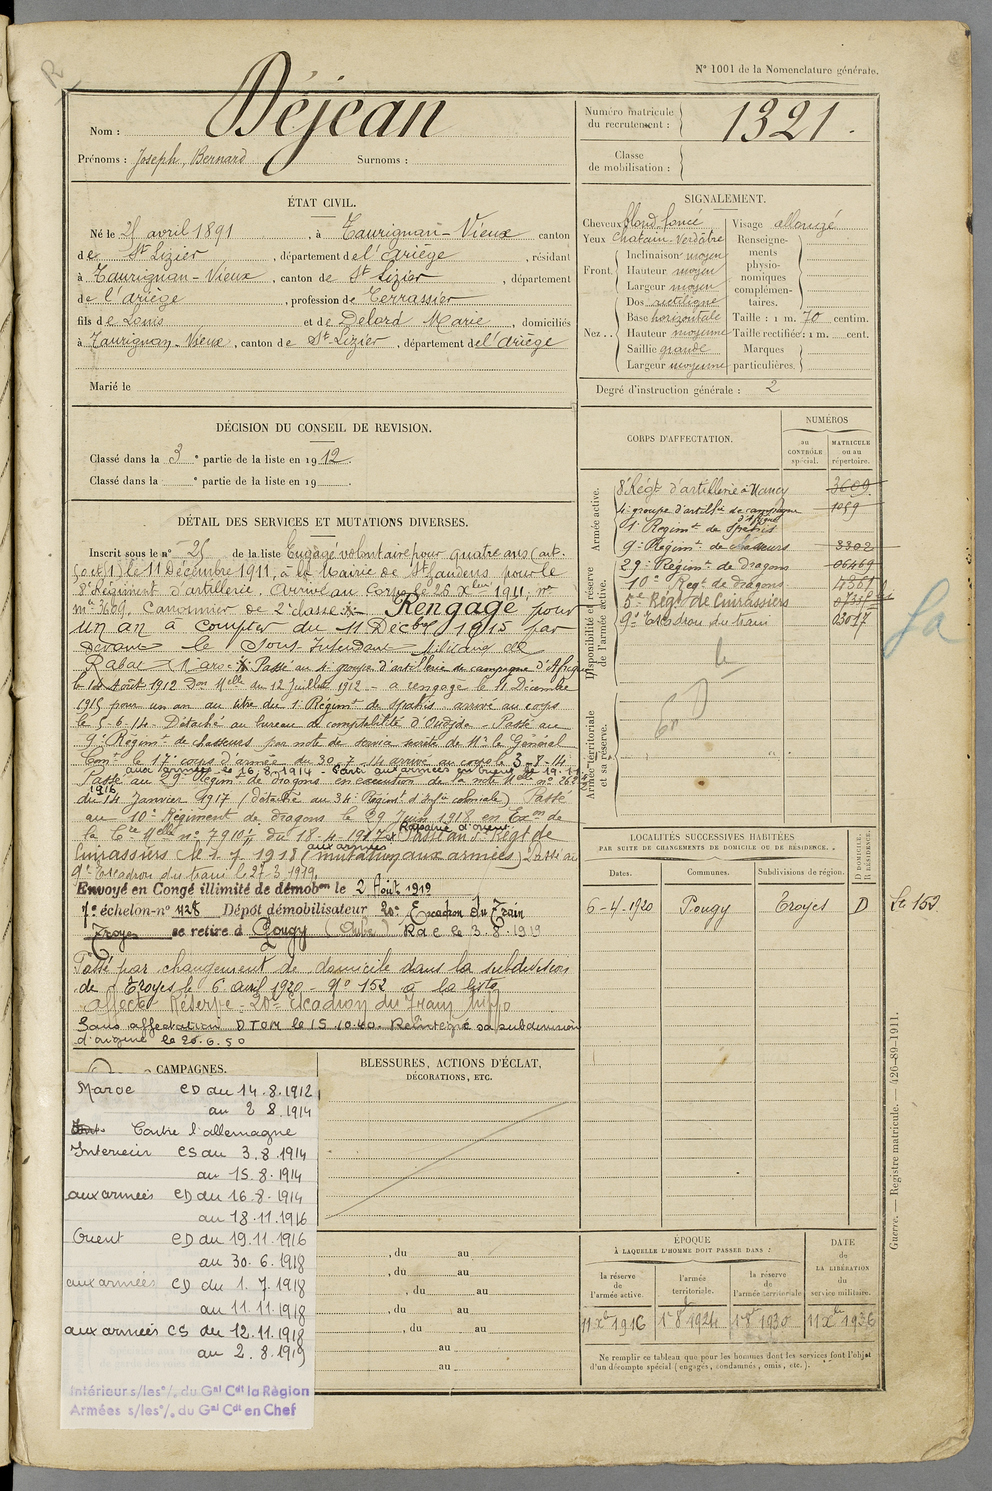 N° 1001 de la Nomenclature générale.
Nom : Déjean
Prénoms : Joseph, Bernard Surnoms :
Numéro matricule du recrutement : 1321.
Classe de mobilisation :
ÉTAT CIVIL.
Né le 25 avril 1891, à Taurignan-Vieux canton
de St Lizier, département de l'Ariège, résidant
à Taurignan-Vieux, canton de St Lizier, département
de l'Ariège, profession de Terrassier
fils de Louis et de Delord Marie, domiciliés
à Taurignan-Vieux, canton de St-Lizier, département de l'Ariège
Marié le
SIGNALEMENT.
Cheveux blond foncé
Yeux chatain verdâtre
Front. Inclinaison moyen
Hauteur moyen
Largeur moyen
Nez.. Dos rectiligne
Base horizontale
Hauteur moyenne
Saillie grande
Largeur moyenne
Visage allongé
Renseignements physionomiques complémentaires.
Taille : 1 m. 70 centim.
Taille rectifiée : 1 m. cent.
Marques particulières.
Degré d'instruction générale : 2
DÉCISION DU CONSEIL DE REVISION.
Classé dans la 3e partie de la liste en 1912.
Classé dans la e partie de la liste en 19
DÉTAIL DES SERVICES ET MUTATIONS DIVERSES.
Inscrit sous le n° 25 de la liste Engagé volontaire pour quatre ans (art.
) le 11 Décembre 1911, à la Mairie de St Gaudens pour le
8e Régiment d'artillerie. Arrivé au Corps le 26 Xbre 1911, n°
mle 3609. Canonnier de 2e classe. Rengagé pour
un an à compter du 11 Décbre 1915 par
devant le Sous-Intendant Militaire de
Rabat Passé au 4e groupe d'artillerie de campagne d'Afrique
le 14 Août 1912 Don Melle du 12 Juillet 1912 - a rengagé le 11 Décembre
1915 pour un an au titre du 1e Régimt de Spahis. arrivé au corps
le 5-6-14 - Détaché au bureau de comptabilité d'Oudjda - Passé au
9e Régimt de chasseurs par note de service de Mr le Général
Comt le 17e corps d'armée du 30-7-14 arrivé au corps le 3-8-14
aux armées le 16.8.1914
Passé au 29e Régimt de dragons en exécution de la note Melle n°
1916
du 14 Janvier 1917 (détaché au 34e Régimt d'Infie coloniale) Passé
au 10e Régiment de dragons le 29 Juin 1918 en Exon de
la Cre Melle n° 7910 du 18-4-1917 Passé au 5e Régt de
Cuirassiers le 1.7.1918 (mutation aux armées) Passé au
9e Escadron du train le 27.3.1919.
Envoyé en Congé illimité de démobon le 2 Août 1919
7e échelon-n° 428 Dépôt démobilisateur 20e Escadron du Train
Troyes se retire à Pougy (Aube) RdC le 3.8.1919
Passé par changement de domicile dans la subdivision
de Troyes le 6 avril 1920 - N° 152 à la liste
affecté Réserve 20e Escadron du Train hippo
Sans affectation DTOM le 15.10.40. Réintégré sa subdivision
d'origine le 20.6.50
CORPS D'AFFECTATION.
NUMÉROS
au contrôle spécial.
MATRICULE ou au répertoire.
Armée active.
8e Régt d'artillerie à Nancy 3609
4e groupe d'artillie de campagne d'Afrique 1059
1e Régimt de Spahis
9e Régimt de chasseurs 3302
Disponibilité et réserve de l'armée active.
29e Régimt de dragons 06469
10e Régt de dragons 4361
5e Régt de Cuirassiers
9e Escadron du train 03017
Armée territoriale et sa réserve.
LOCALITÉS SUCCESSIVES HABITÉES
PAR SUITE DE CHANGEMENTS DE DOMICILE OU DE RÉSIDENCE.
Dates. Communes. Subdivisions de région. D DOMICILE. R RÉSIDENCE.
6-4-1920 Pougy Troyes D
CAMPAGNES.
Maroc CD du 14.8.1912
au 2 8.1914
Contre l'allemagne
Intérieur CS du 3.8.1914
au 15.8.1914
aux armées CD du 16.8.1914
au 18.11.1916
Orient CD du 19.11.1916
au 30.6.1918
aux armées CD du 1.7.1918
au 11.11.1918
aux armées CS du 12.11.1918
au 2.8.1919
Intérieur s/les °/. du Gal Cdt la Région
Armées s/les °/. du Gal Cdt en Chef
BLESSURES, ACTIONS D'ÉCLAT,
DÉCORATIONS, ETC.
, du au
, du au
, du au
, du au
, du au
au
au
ÉPOQUE
À LAQUELLE L'HOMME DOIT PASSER DANS :
la réserve de l'armée active. l'armée territoriale. la réserve de l'armée territoriale
DATE de LA LIBÉRATION du service militaire.
11 Xbre 1916 1er 8bre 1924 1er 8bre 1930 11 Xbre 1936
Ne remplir ce tableau que pour les hommes dont les services font l'objet
d'un décompte spécial (engagés, condamnés, omis, etc.).
Guerre. — Registre matricule. — 426-89-1911.